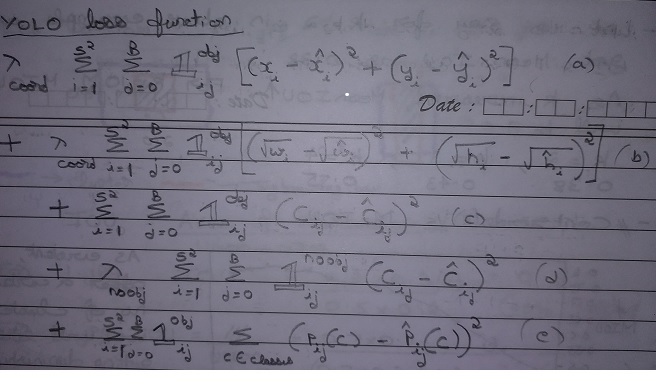 YOLO loss function
λ_coord Σ_{i=1}^{S²} Σ_{j=0}^{B} 𝟙_{ij}^{obj} [(x_i - x̂_i)² + (y_i - ŷ_i)²] (a)
Date :
+ λ_coord Σ_{i=1}^{S²} Σ_{j=0}^{B} 𝟙_{ij}^{obj} [(√w_i - √ŵ_i)² + (√h_i - √ĥ_i)²] (b)
+ Σ_{i=1}^{S²} Σ_{j=0}^{B} 𝟙_{ij}^{obj} (C_{ij} - Ĉ_{ij})² (c)
+ λ_noobj Σ_{i=1}^{S²} Σ_{j=0}^{B} 𝟙_{ij}^{noobj} (C_{ij} - Ĉ_{ij})² (d)
+ Σ_{i=1}^{S²} Σ_{j=0}^{B} 𝟙_{ij}^{obj} Σ_{c∈classes} (p_{ij}(c) - p̂_{ij}(c))² (e)